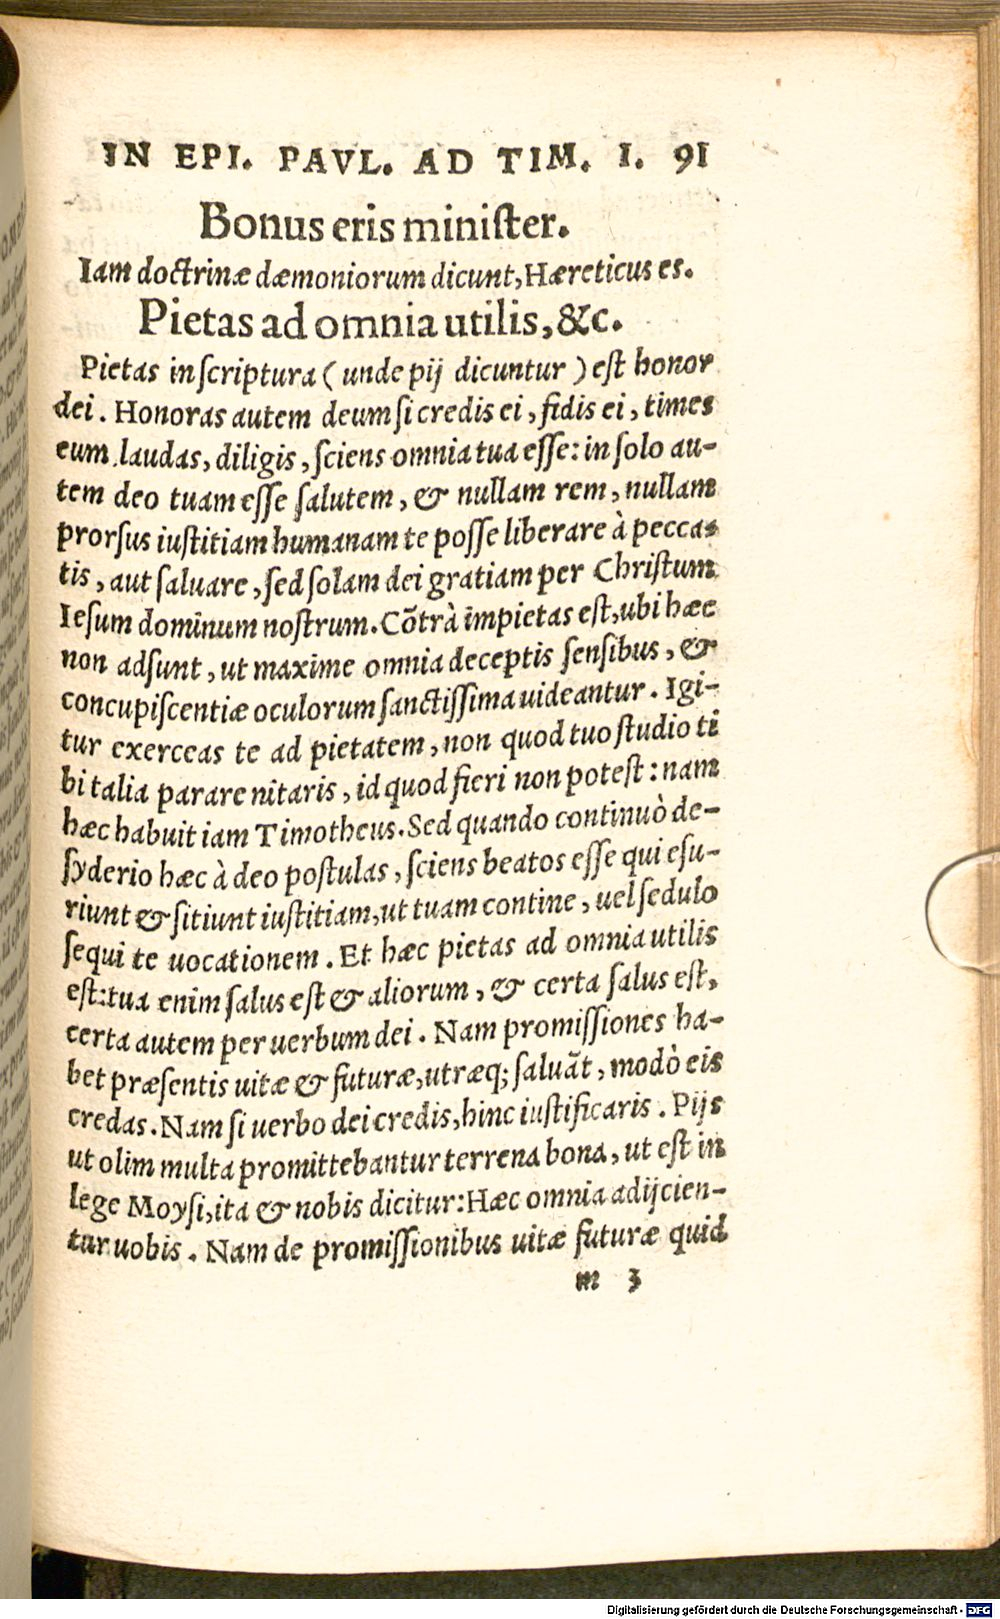 IN EPI. PAVL. AD TIM. I. 91
Bonus eris miniſter.
Iam doctrinæ dæmoniorum dicunt, Hæreticus es.
Pietas ad omnia utilis, &c.
Pietas in ſcriptura ( unde pij dicuntur ) eſt honor
dei. Honoras autem deum ſi credis ei, fidis ei, times
eum laudas, diligis, ſciens omnia tua eſſe: in ſolo au-
tem deo tuam eſſe ſalutem, & nullam rem, nullam
prorſus iuſtitiam humanam te poſſe liberare à pecca-
tis, aut ſaluare, ſed ſolam dei gratiam per Chriſtum
Ieſum dominum noſtrum. Cõtrà impietas eſt, ubi hæc
non adſunt, ut maxime omnia deceptis ſenſibus, &
concupiſcentiæ oculorum ſanctiſſima uideantur. Igi-
tur exerceas te ad pietatem, non quod tuo ſtudio ti
bi talia parare nitaris, id quod fieri non poteſt: nam
hæc habuit iam Timotheus. Sed quando continuò de-
ſyderio hæc à deo poſtulas, ſciens beatos eſſe qui eſu-
riunt & ſitiunt iuſtitiam, ut tuam contine, uel ſedulo
ſequi te uocationem. Et hæc pietas ad omnia utilis
eſt: tua enim ſalus eſt & aliorum, & certa ſalus eſt,
certa autem per uerbum dei. Nam promiſſiones ha-
bet præſentis uitæ & futuræ, utræq; ſaluãt, modò eis
credas. Nam ſi uerbo dei credis, hinc iuſtificaris. Pijs
ut olim multa promittebantur terrena bona, ut eſt in
lege Moyſi, ita & nobis dicitur: Hæc omnia adijcien-
tur uobis. Nam de promiſſionibus uitæ futuræ quid
m 3
Digitalisierung gefördert durch die Deutsche Forschungsgemeinschaft - DFG